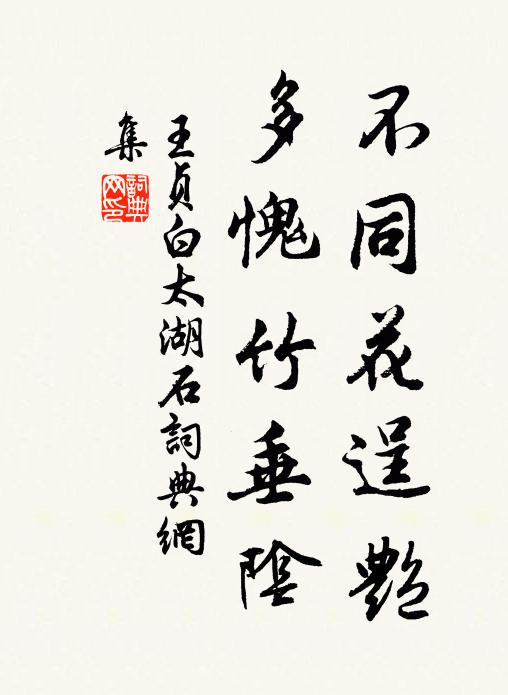 不同花逞艷
多愧竹垂陰
王貞白太湖石詞典網
集
詞典
网印